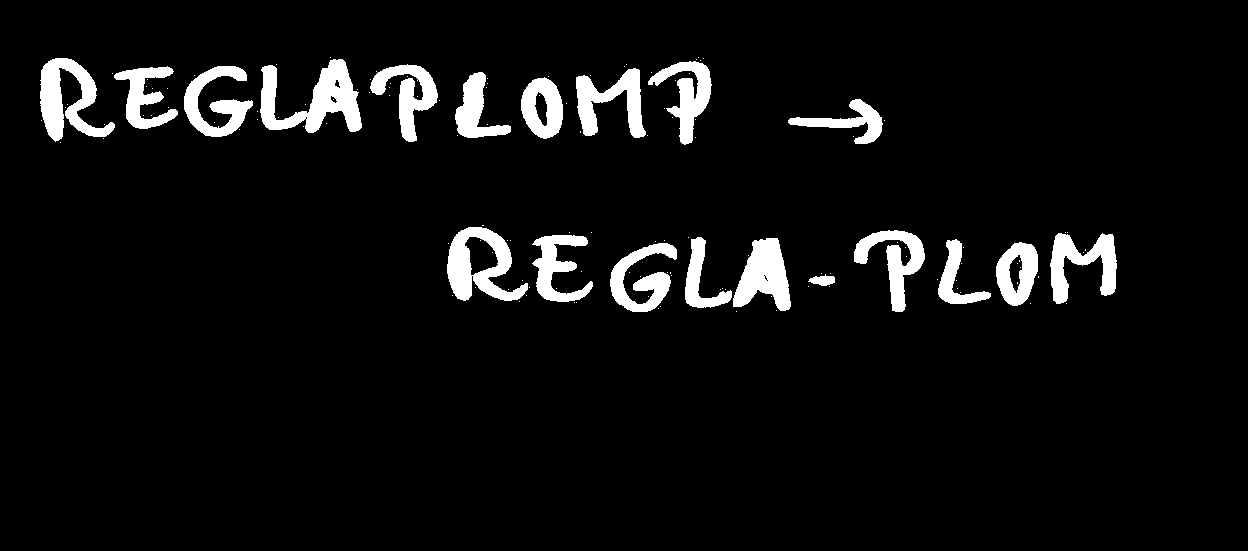 REGLAPLOMP →
REGLA-PLOM